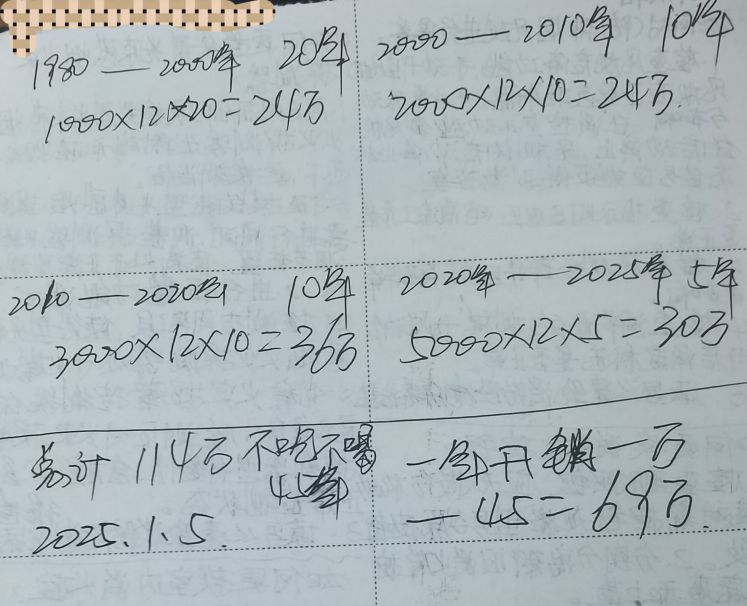 1980 — 2000年 20年
1000×12×20=24万
2000 — 2010年 10年
2000×12×10=24万.
2010 — 2020年 10年
3000×12×10=36万
2020年 — 2025年 5年
5000×12×5=30万
总计 114万 不吃不喝
45年
2025.1.5.
一年开销一万
—45=69万.